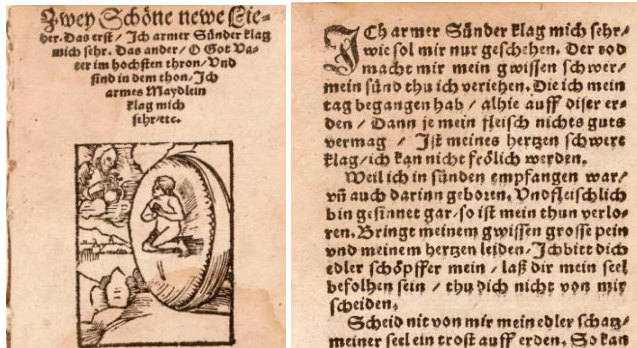 Zwey Schöne newe Lie-
der. Das erst / Ich armer Sünder klag
mich sehr. Das ander / O Got Va-
ter im hochsten thron / Vnd
sind in dem thon / Ich
armes Maydlein
klag mich
sehr / etc.
ICh armer Sünder klag mich sehr /
wie sol mir nur geschehen. Der tod
macht mir mein gwissen schwer /
mein sünd thu ich veriehen. Die ich mein
tag begangen hab / alhie auff diser er-
den / Dann je mein fleisch nichts guts
vermag / Ist meines hertzen schwere
klag / ich kan nicht frölich werden.
Weil ich in sünden empfangen war /
vñ auch darinn geboren. Vnd fleischlich
bin gesinnet gar / so ist mein thun verlo-
ren. Bringt meinem gwissen grosse pein
vnd meinem hertzen leiden / Ich bitt dich
edler schöpffer mein / laß dir mein seel
befolhen sein / thu dich nicht von mir
scheiden.
Scheid nit von mir mein edler schatz /
meiner seel ein trost auff erden. So kan